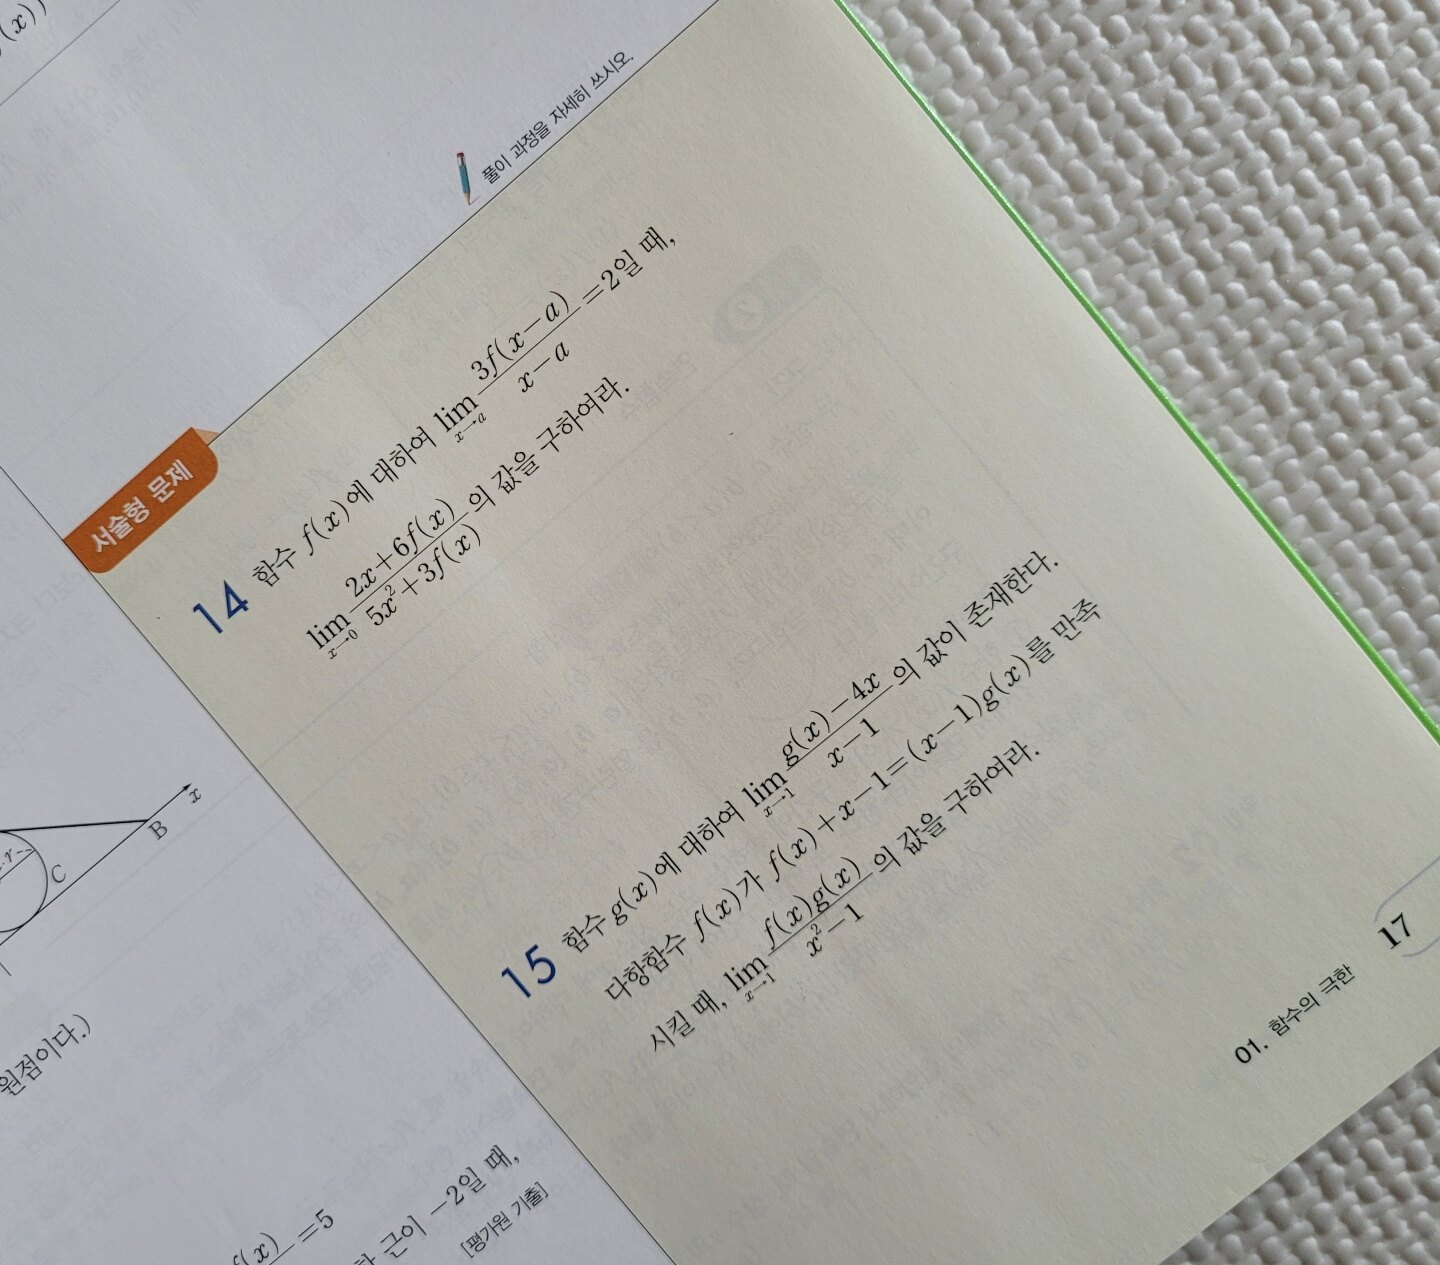 (x))
풀이 과정을 자세히 쓰시오.
서술형 문제
14 함수 f(x)에 대하여 lim_{x→a} \frac{3f(x-a)}{x-a}=2일 때,
lim_{x→0} \frac{2x+6f(x)}{5x²+3f(x)}의 값을 구하여라.
15 함수 g(x)에 대하여 lim_{x→1} \frac{g(x)-4x}{x-1}의 값이 존재한다.
다항함수 f(x)가 f(x)+x-1=(x-1)g(x)를 만족
시킬 때, lim_{x→1} \frac{f(x)g(x)}{x²-1}의 값을 구하여라.
x
B
r
C
원점이다.)
f(x)
=5
근이 -2일 때,
[평가원 기출]
01. 함수의 극한 17